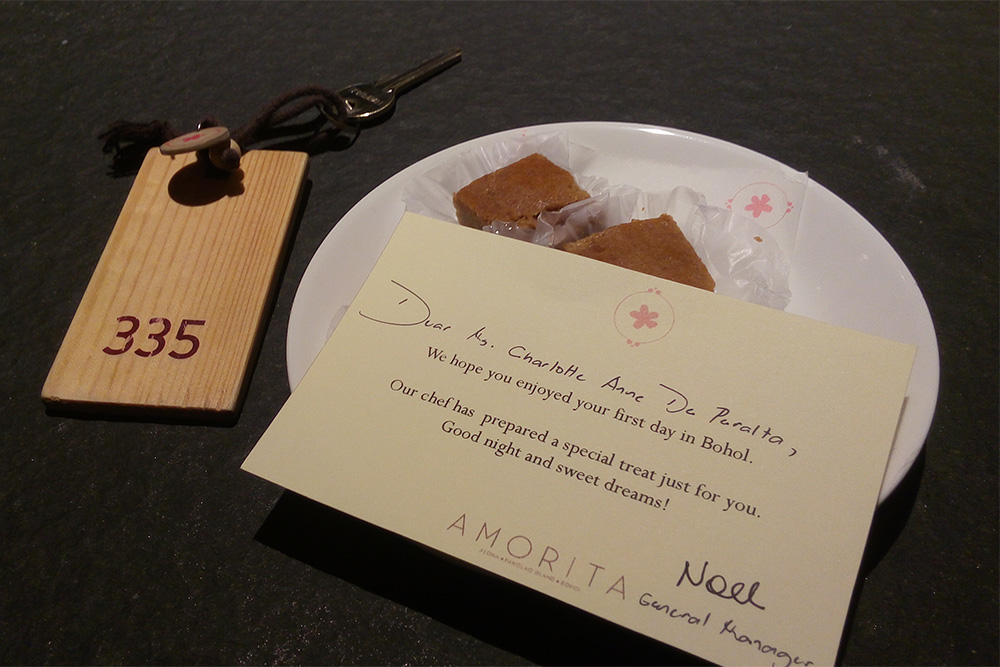 335
Dear Ms. Charlotte Anne De Paralta,
We hope you enjoyed your first day in Bohol.
Our chef has prepared a special treat just for you.
Good night and sweet dreams!
AMORITA
ALONA • PANGLAO ISLAND • BOHOL
Noel
General Manager